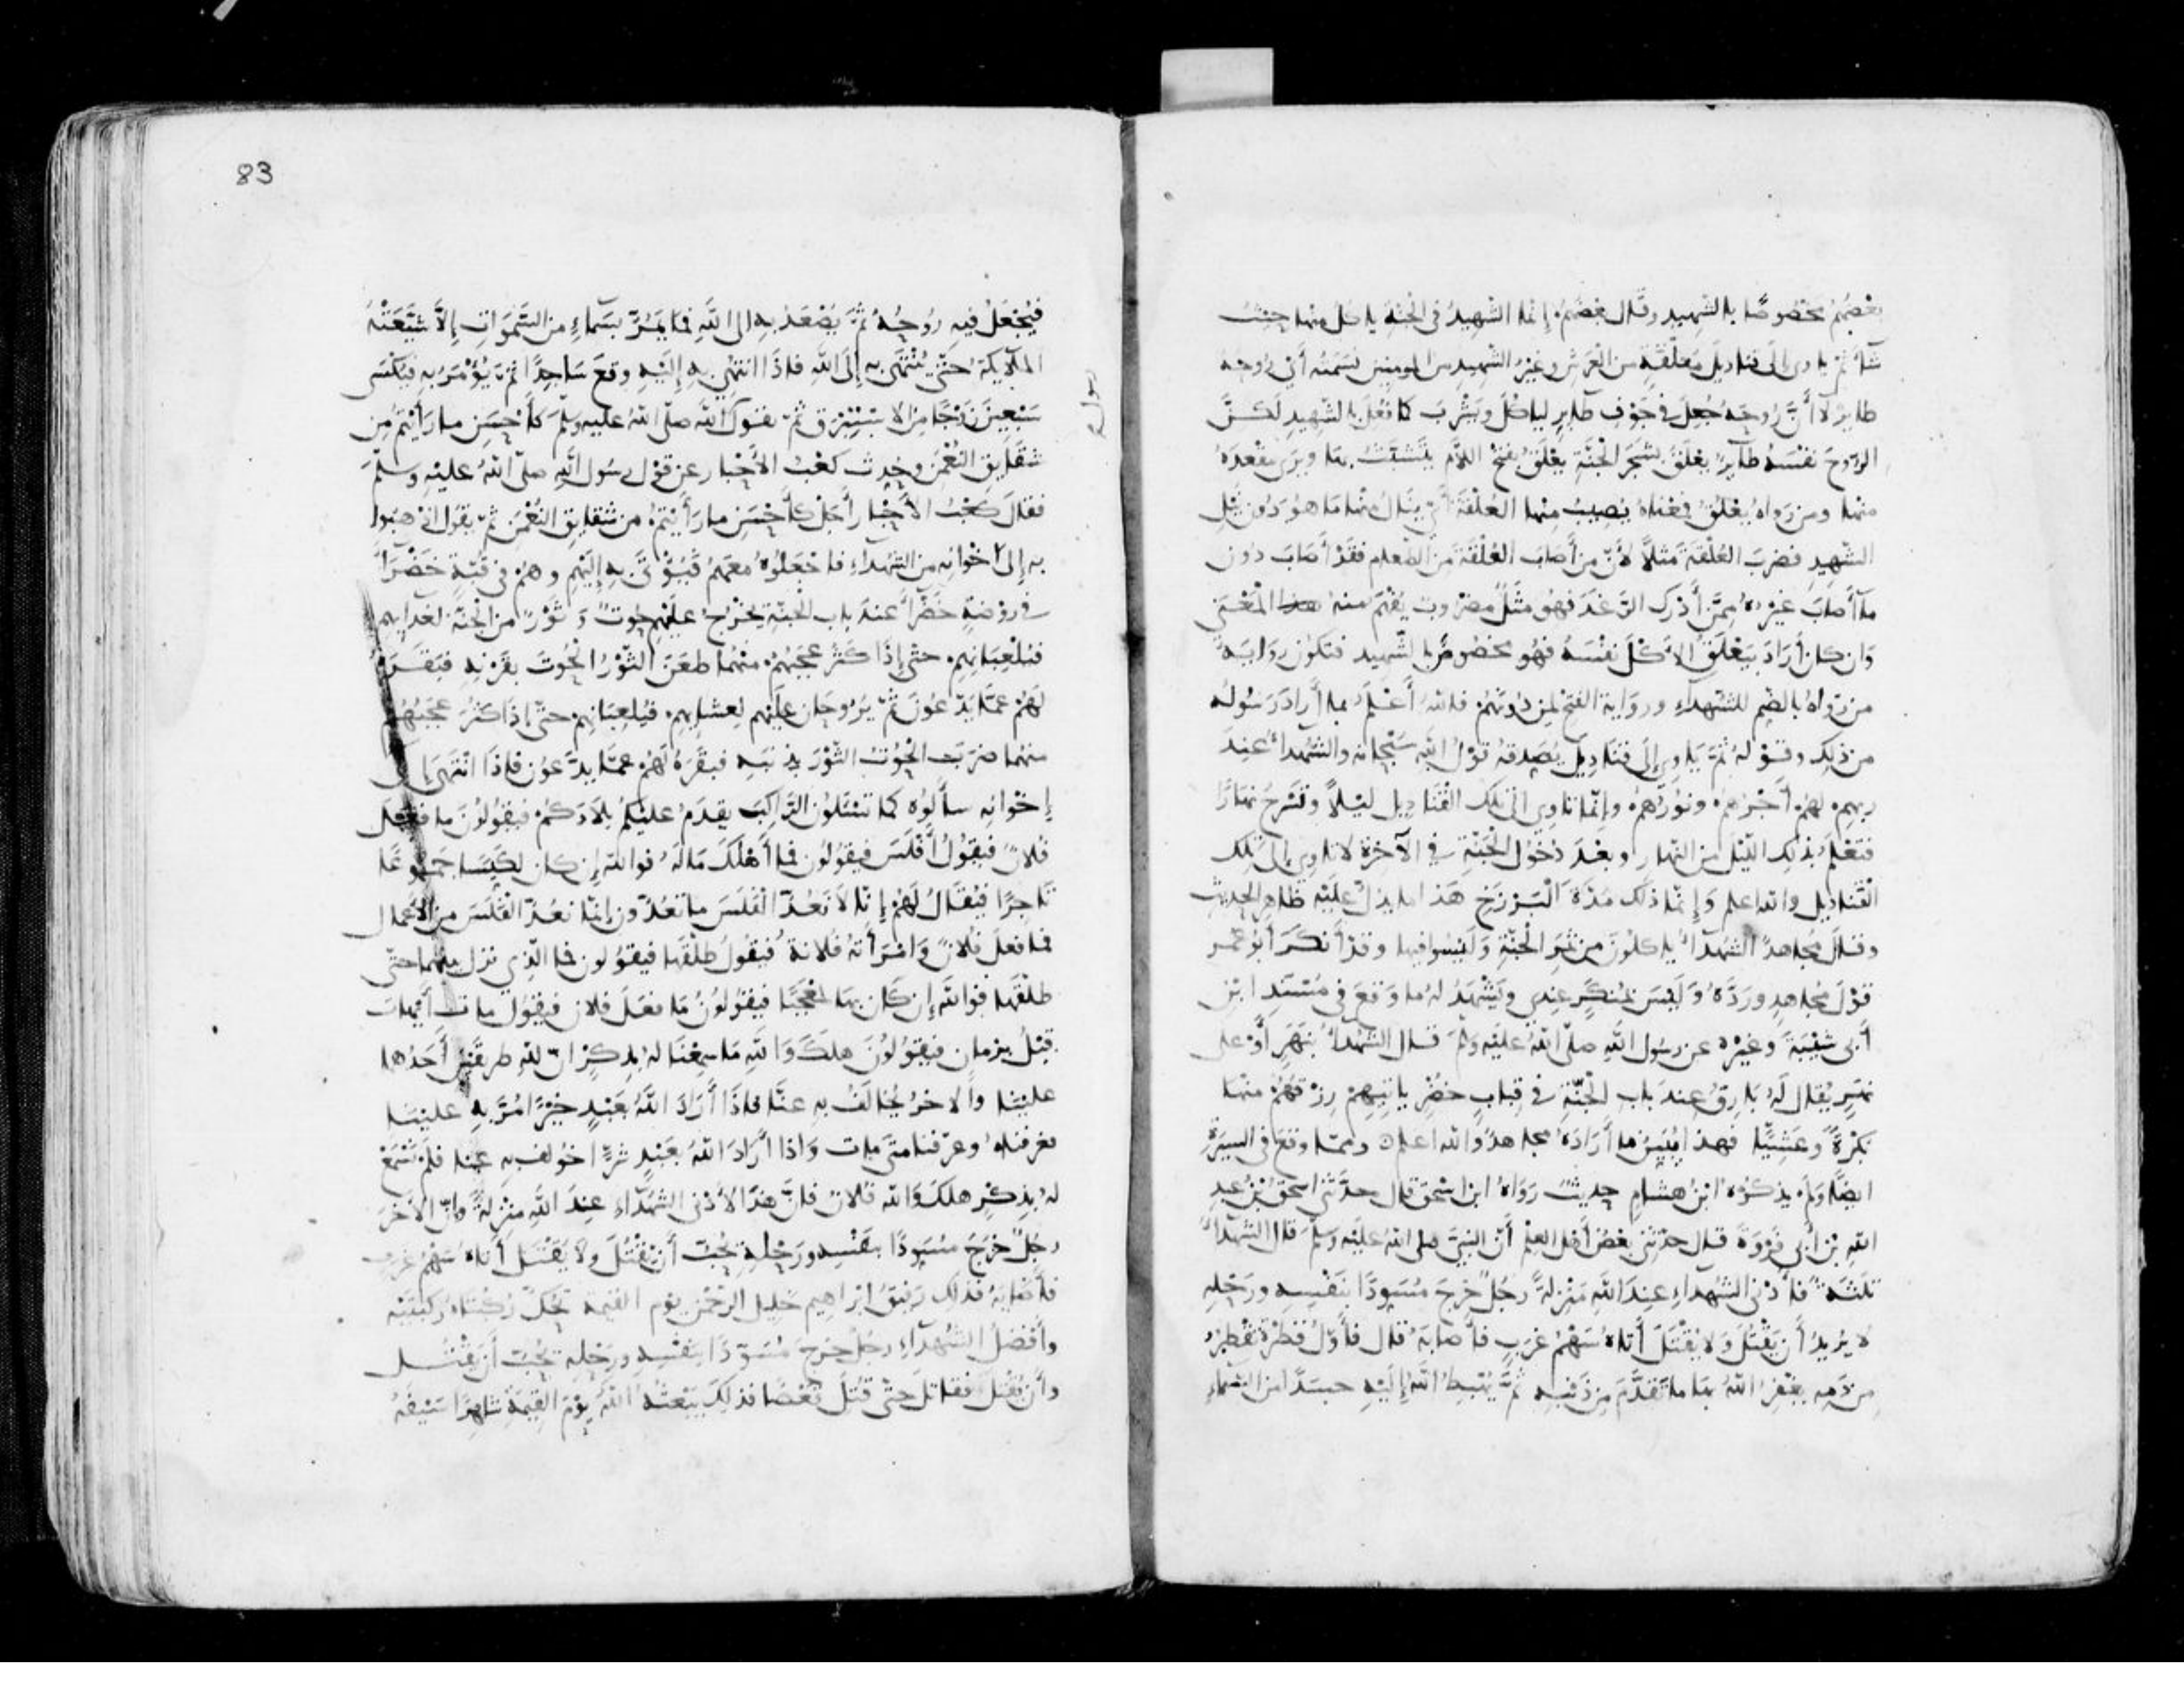 بعضهم مخصوصا بالشهيد وقال بعضهم إنما الشهيد في الجنة ياكل منها حيث
شآء ثم ياوى إلى قناديل معلقة من العرش وغير الشهيد من المومنين نسمته أي روحه
طاير لا أن روحه جعل في جوف طاير لياكل ويشرب كما فعل بالشهيد لكن
الروح نفسه طاير يعلق بشجر الجنة يعلق بفتح اللام يتشبث بها ويرى مقعده
منها ومن رواه يعلق فمعناه يصيب منها العلقة أي ينال منها ما هو دون نيل
الشهيد فضرب العلقة مثلا لأن من أصاب العلقة من الطعام فقد أصاب دون
ما أصاب غيره ممن أدرك الرغد فهو مثل مضروب يفهم منه هذا المعنى
وان كان أراد بيعلق الأكل نفسه فهو مخصوص بالشهيد فتكون رواية
من رواه بالضم للشهداء ورواية الفتح لمن دونهم فالله أعلم بما أراد رسوله
من ذلك وقوله ثم ياوي إلى قناديل يصدقه قول الله سبحانه والشهداء عند
ربهم لهم أجرهم ونورهم وإنما تاوي الى تلك القناديل ليلا وتسرح نهارا
فتعلم بذلك الليل من النهار وبعد دخول الجنة في الآخرة لا تاوي إلى تلك
القناديل والله اعلم وإنما ذلك مدة البرزخ هذا ما يدل عليه ظاهر الحديث
وقال مجاهد الشهداء ياكلون من ثمر الجنة وليسوا فيها وقد أنكر أبو عمر
قول مجاهد ورده وليس بمنكر عندي ويشهد له ما وقع في مسند ابن
أبي شيبة وغيره عن رسول الله صلى الله عليه وسلم قال الشهداء بنهر أو على
نهر يقال له بارق عند باب الجنة في قباب خضر ياتيهم رزقهم منها
بكرة وعشيا فهذا يبين ما أراده مجاهد والله اعلم ومما وقع في السيرة
ايضا ولم يذكره ابن هشام حديث رواه ابن اسحق قال حدثني اسحق بن عبد
الله بن أبي فروة قال حدثني بعض أهل العلم أن النبي صلى الله عليه وسلم قال الشهداء
ثلثة فأدنى الشهداء عند الله منزلة رجل خرج مسودا بنفسه ورحله
لا يريد أن يقتل ولا يقتل أتاه سهم غرب فأصابه قال فأول قطرة تقطر
من دمه يغفر الله بها ما تقدم من ذنبه ثم يهبط الله إليه جسدا من السماء
83
فيجعل فيه روحه ثم يصعد به إلى الله فما يمر بسماء من السموات إلا شيعته
الملايكة حتى ينتهى به إلى الله فاذا انتهى به إليه وقع ساجدا ثم يؤمر به فيكسى
سبعين زوجا من الاستبرق ثم يقول الله صلى الله عليه وسلم كأحسن ما رأيتم من
شقايق النعمن وحدث كعب الأحبار عن قول رسول الله صلى الله عليه وسلم
فقال كعب الأحبار أجل كأحسن ما رأيتم من شقايق النعمن ثم يقول اذهبوا
به إلى اخوانه من الشهداء فاجعلوه معهم فيؤتى به إليهم وهم في قبة خضراء
في روضة خضراء عند باب الجنة يخرج عليهم حوت وثور من الجنة لغدايهم
فيلعبانهم حتى إذا كثر عجبهم منهما طعن الثور الحوت بقرنه فبقره
لهم عما يدعون ثم يروحان عليهم لعشايهم فيلعبانهم حتى إذا كثر عجبهم
منهما ضرب الحوت الثور بذنبه فبقره لهم عما يدعون فاذا انتهى إلى
إخوانه سألوه كما تسئلون الراكب يقدم عليكم بلادكم فيقولون ما فعل
فلان فيقول أفلس فيقولون فما أهلك ماله فوالله إن كان لكيسا جموعا
تاجرا فيقال لهم إنا لا نعد الفلس ما تعدون إنما نعد الفلس من الأعمال
فما فعل فلان وامرأته فلانة فيقول طلقها فيقولون فما الذي نزل بينهما حتى
طلقها فوالله إن كان بها لمعجبا فيقولون ما فعل فلان فيقول مات أيهات
قبل بزمان فيقولون هلك والله ما سمعنا له بذكر ان لله طريقين أحدهما
علينا والاخر يخالف به عنا فاذا أراد الله بعبد خيرا مر به علينا
فعرفناه وعرفنا متى مات واذا أراد الله بعبد شرا خولف به عنا فلم نسمع
له بذكر هلك والله فلان فان هذا لأدنى الشهداء عند الله منزلة وان الاخر
رجل خرج مسودا بنفسه ورحله يحب أن يقتل ولا يقتل أتاه سهم غرب
فأصابه فذلك رفيق ابراهيم خليل الرحمن يوم القيمة تحك ركبتاه ركبتيه
وأفضل الشهداء رجل خرج مسودا بنفسه ورحله يحب أن يقتل
وأن يقتل فقاتل حتى قتل قعصا فذلك يبعثه الله يوم القيمة شاهرا سيفه